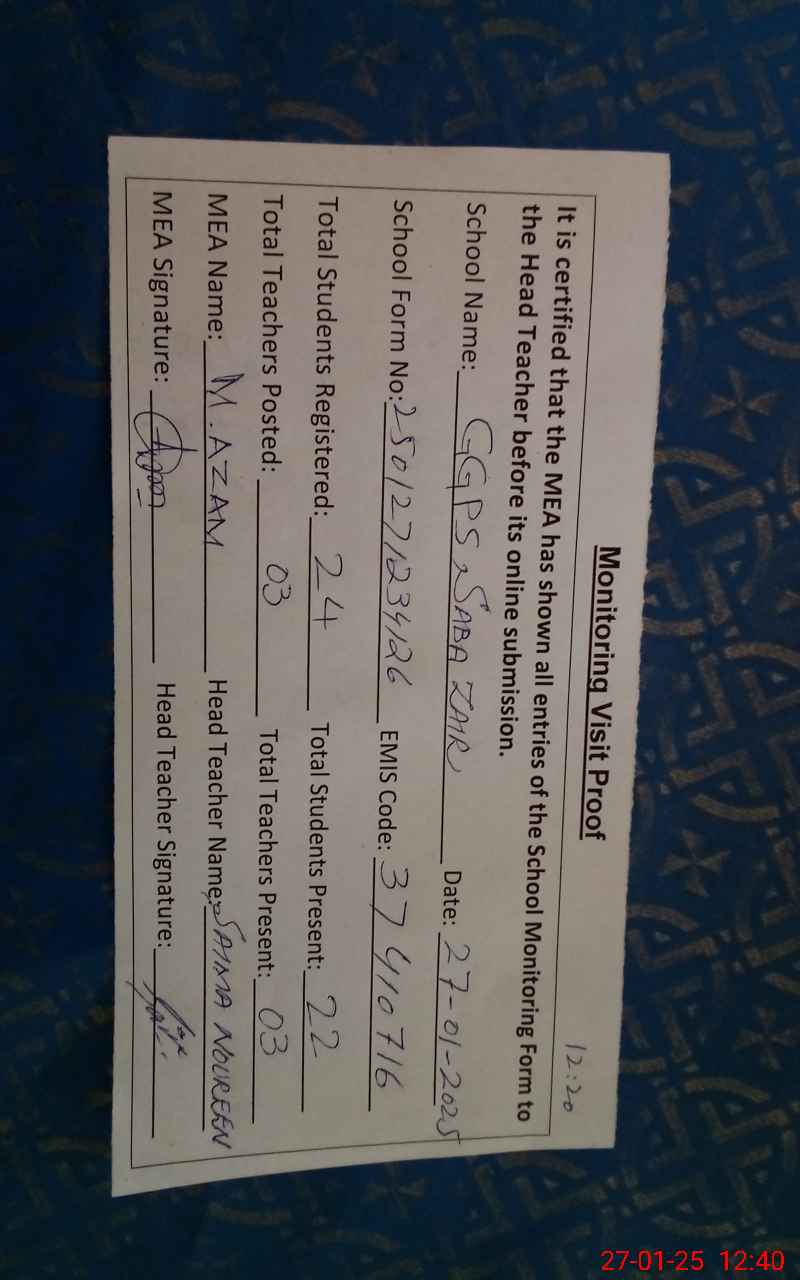 Monitoring Visit Proof
12:20
It is certified that the MEA has shown all entries of the School Monitoring Form to
the Head Teacher before its online submission.
School Name: GGPS, SABA ZAIR Date: 27-01-2025
School Form No: 2501271234126 EMIS Code: 37410716
Total Students Registered: 24 Total Students Present: 22
Total Teachers Posted: 03 Total Teachers Present: 03
MEA Name: M. AZAM Head Teacher Name: SAIMA NOUREEN
MEA Signature: Head Teacher Signature:
27-01-25 12:40